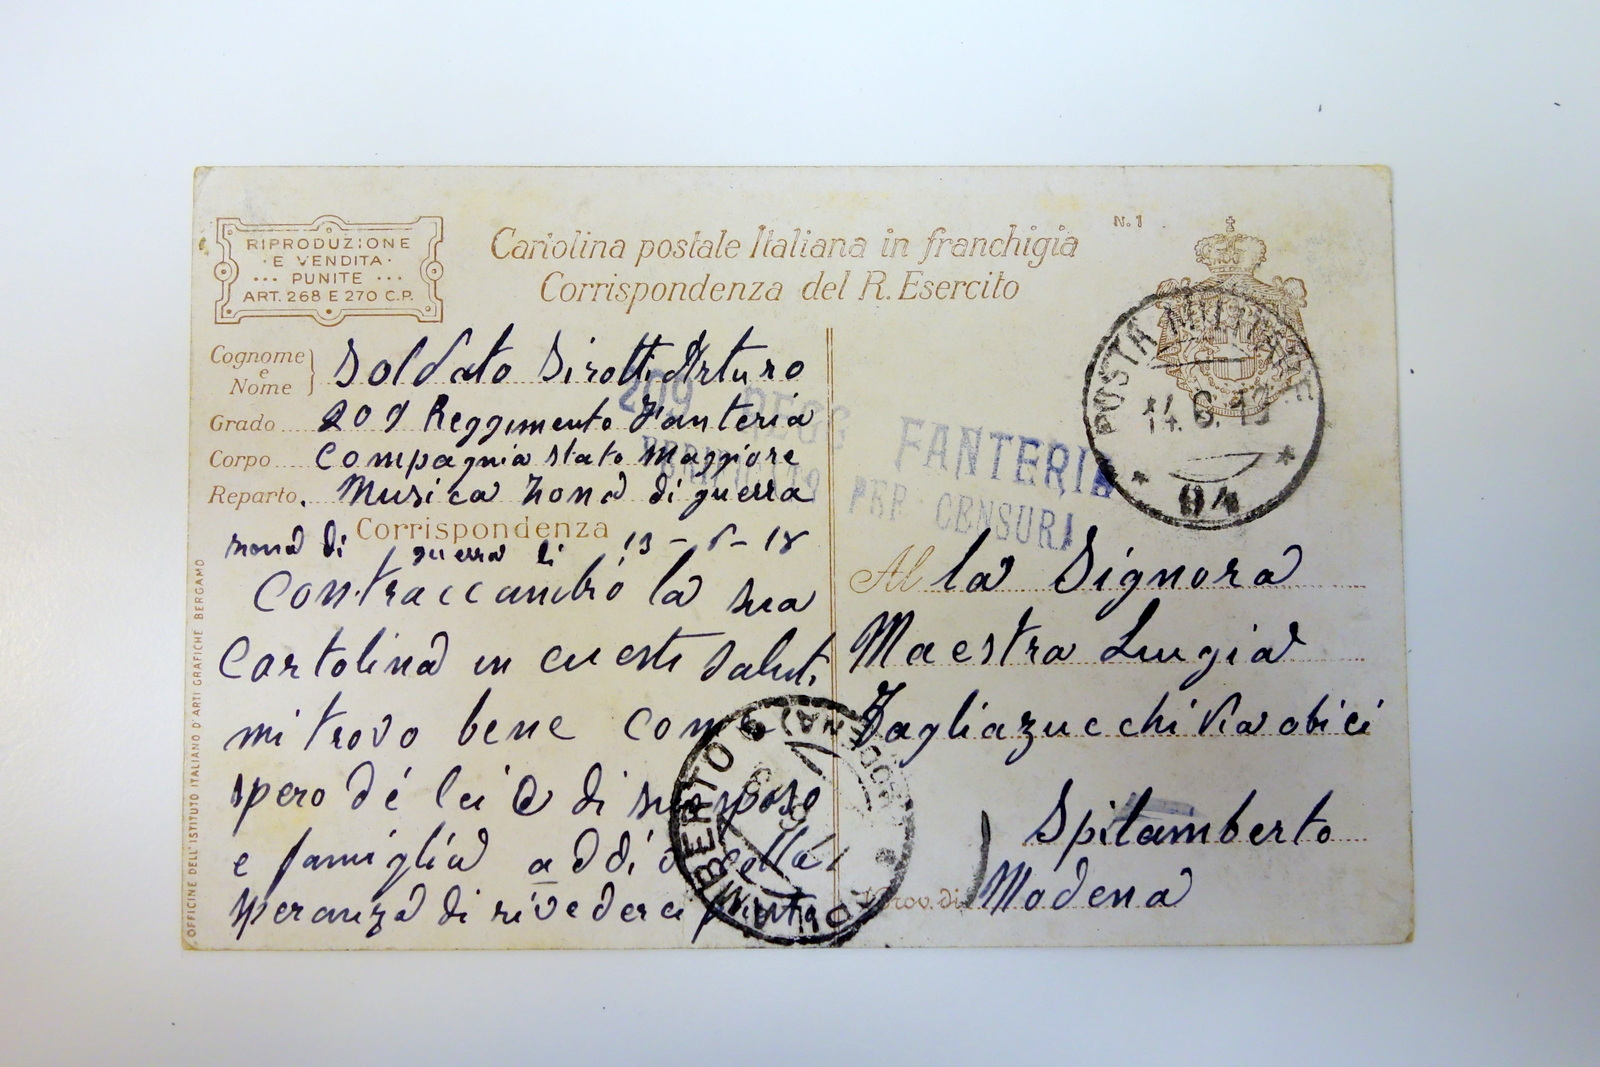 RIPRODUZIONE
E VENDITA
PUNITE
ART. 268 E 270 C.P.
Cartolina postale Italiana in franchigia
Corrispondenza del R. Esercito
N. 1
Cognome e Nome Soldato Sirotti Arturo
Grado 209 Reggimento Fanteria
Corpo Compagnia stato Maggiore
Reparto. Musica zona di guerra
Corrispondenza
zona di guerra li 13-6-18
Contraccambió la sua
Cartolina in cuesti saluti
mi trovo bene come
spero dé lei e di suo sposo
e famiglia addio colla
speranza di rivederci presto
209 REGG FANTERIA
PER CENSURA
POSTA MILITARE
14.6.18
94
Al la Signora
Maestra Luigia
Tagliazucchi Via obici
Spilamberto
Prov. di Modena
SPILAMBERTO
MODENA
OFFICINE DELL'ISTITUTO ITALIANO D'ARTI GRAFICHE BERGAMO